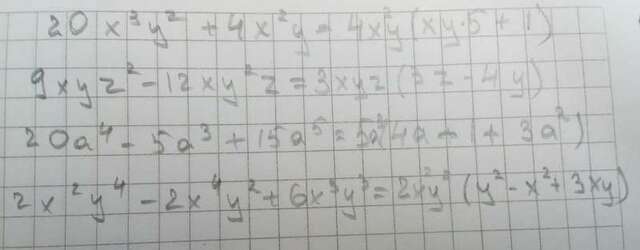 20x³y² + 4x²y = 4x²y(xy·5 + 1)
9xyz² - 12xy²z = 3xyz(3z - 4y)
20a⁴ - 5a³ + 15a⁵ = 5a³(4a - 1 + 3a²)
2x²y⁴ - 2x⁴y² + 6x³y³ = 2x²y²(y² - x² + 3xy)